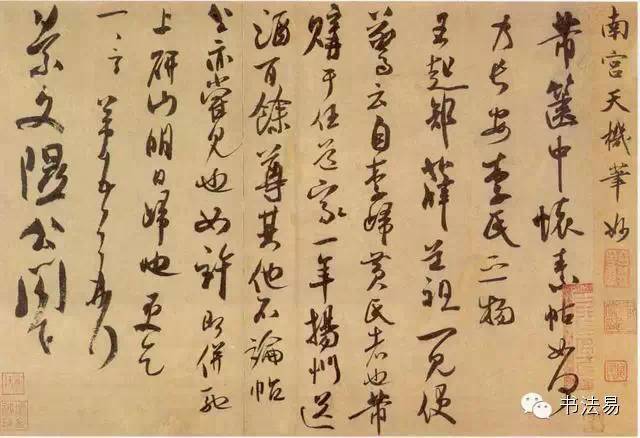 南宮天機筆妙
芾篋中懷素帖如何
乃長安李氏之物
王起部薛道祖一見便
驚云自李歸黃氏者也芾
購于任道家一年揚州送
酒百餘尊其他不論帖
公亦嘗見也如許即併馳
上研山明日歸也更乞
一言芾頓首再拜
景文隰公閣下
书法易